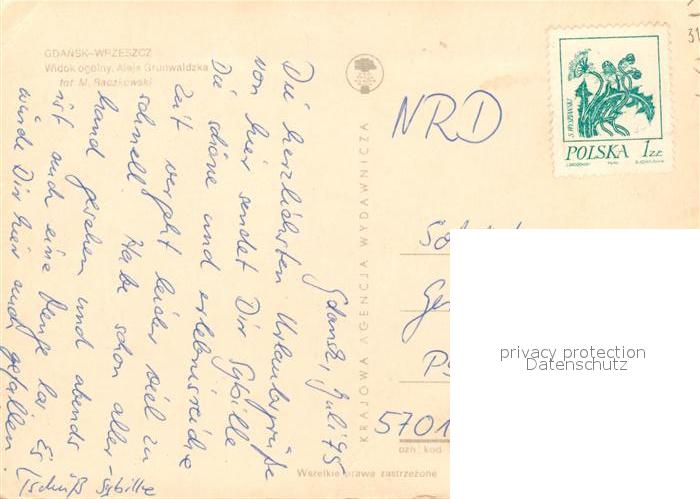 GDAŃSK—WRZESZCZ
Widok ogólny, Aleja Grunwaldzka
fot. M. Raczkowski
Gdansk, Juli 75
Die herzlichsten Urlaubsgrüße
von hier sendet Dir Sybille.
Die schöne und erlebnisreiche
Zeit vergeht leider viel zu
schnell. Habe schon aller-
hand gesehen und abends
ist auch eine Menge los. Es
würde Dir hier auch gefallen.
Tschüß Sybille
KRAJOWA AGENCJA WYDAWNICZA
NRD
S. WYSPIAŃSKI
POLSKA 1 ZŁ
31
5701
ozn. kod
Wszelkie prawa zastrzeżone
privacy protection
Datenschutz